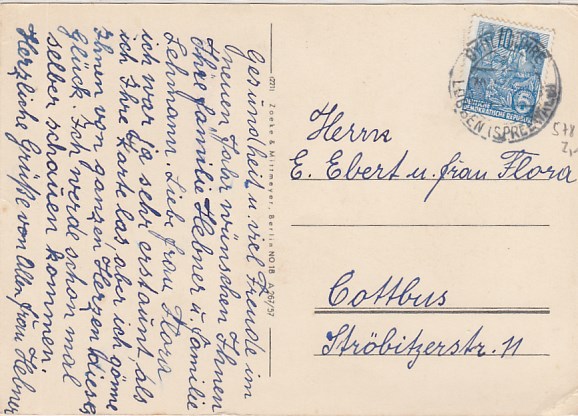 Gesundheit u. viel Freude im
neuen Jahr wünschen Ihnen
Ihre familie Helmer u. familie
Lehmann. Liebe frau Flora
ich war ja sehr erstaunt als
ich Ihre Karte las, aber ich gönne
Ihnen von ganzen Herzen dieses
Glück. Ich werde schon mal
selber schauen kommen.
Herzliche Grüße von Allen frau Helmer
(221) Zoeke & Mittmeyer, Berlin NO 18 A 267/57
10 JAHRE
LÜBBEN (SPREEWALD)
DEUTSCHE
DEMOKRATISCHE REPUBLIK
10
Herrn
E. Ebert u. frau Flora
Cottbus
Ströbitzerstr. 11